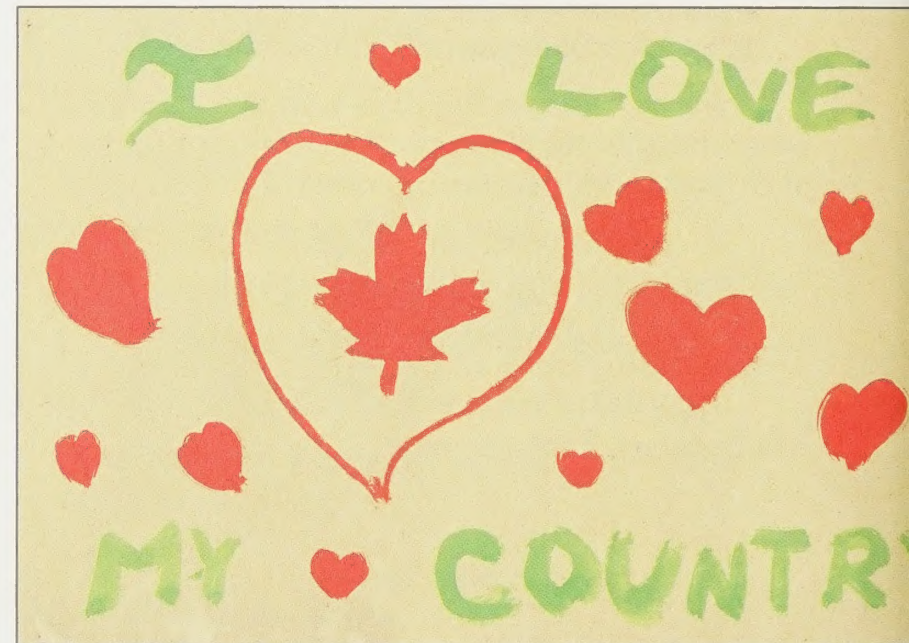 I LOVE
MY COUNTRY